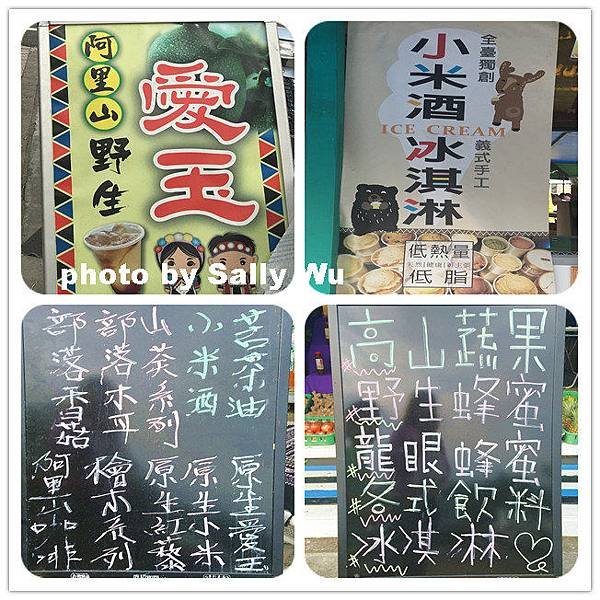 阿里山野生
愛玉
全臺獨創
小米酒冰淇淋
ICE CREAM
義式手工
低熱量
低脂
photo by Sally Wu
苦茶油
原生愛玉
小米酒
原生小米
山茶系列
原生紅藜
部落木耳
檜木系列
部落香菇
阿里山咖啡
高山蔬果
#野生蜂蜜
#龍眼蜂蜜
#各式飲料
#冰淇淋♡